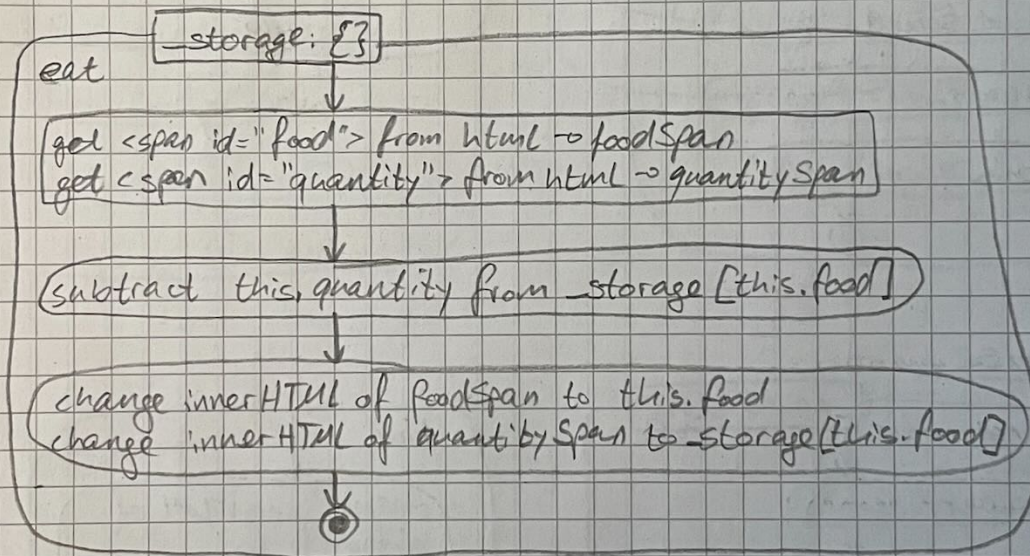 _storage: {}
eat
get <span id="food"> from html → foodSpan
get <span id="quantity"> from html → quantitySpan
subtract this.quantity from _storage [this.food]
change innerHTML of foodSpan to this.food
change innerHTML of quantitySpan to _storage[this.food]